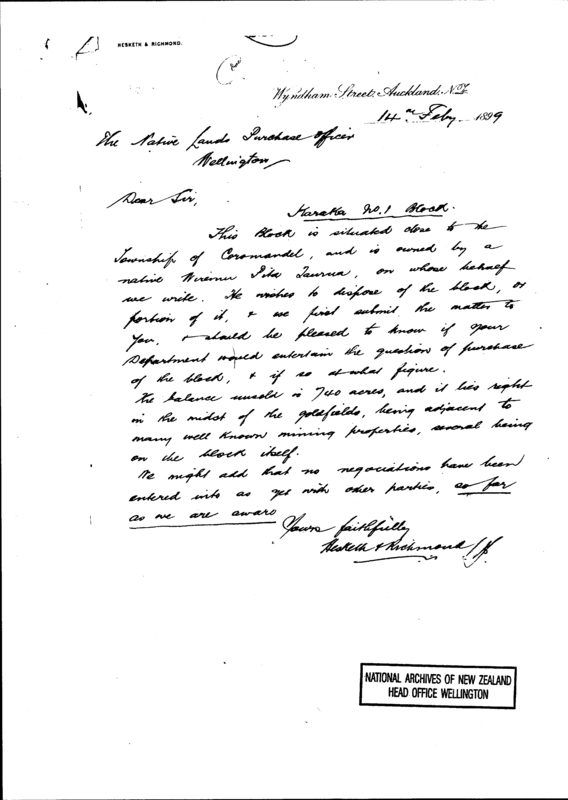 HESKETH & RICHMOND.
Wyndham Street, Auckland, N.Z.
14th Feby. 1899
The Native Lands Purchase Officer
Wellington
Dear Sir,
Karaka No. 1 Block.
This Block is situated close to the
Township of Coromandel, and is owned by a
native Wiremu Pita Taurua, on whose behalf
we write. He wishes to dispose of the block, or
portion of it, & we first submit the matter to
you, & should be pleased to know if your
Department would entertain the question of purchase
of the block, & if so at what figure.
The balance unsold is 740 acres, and it lies right
in the midst of the goldfields, being adjacent to
many well known mining properties, several being
on the block itself.
We might add that no negociations have been
entered into as yet with other parties, so far
as we are aware
Yours faithfully
Hesketh & Richmond
NATIONAL ARCHIVES OF NEW ZEALAND
HEAD OFFICE WELLINGTON